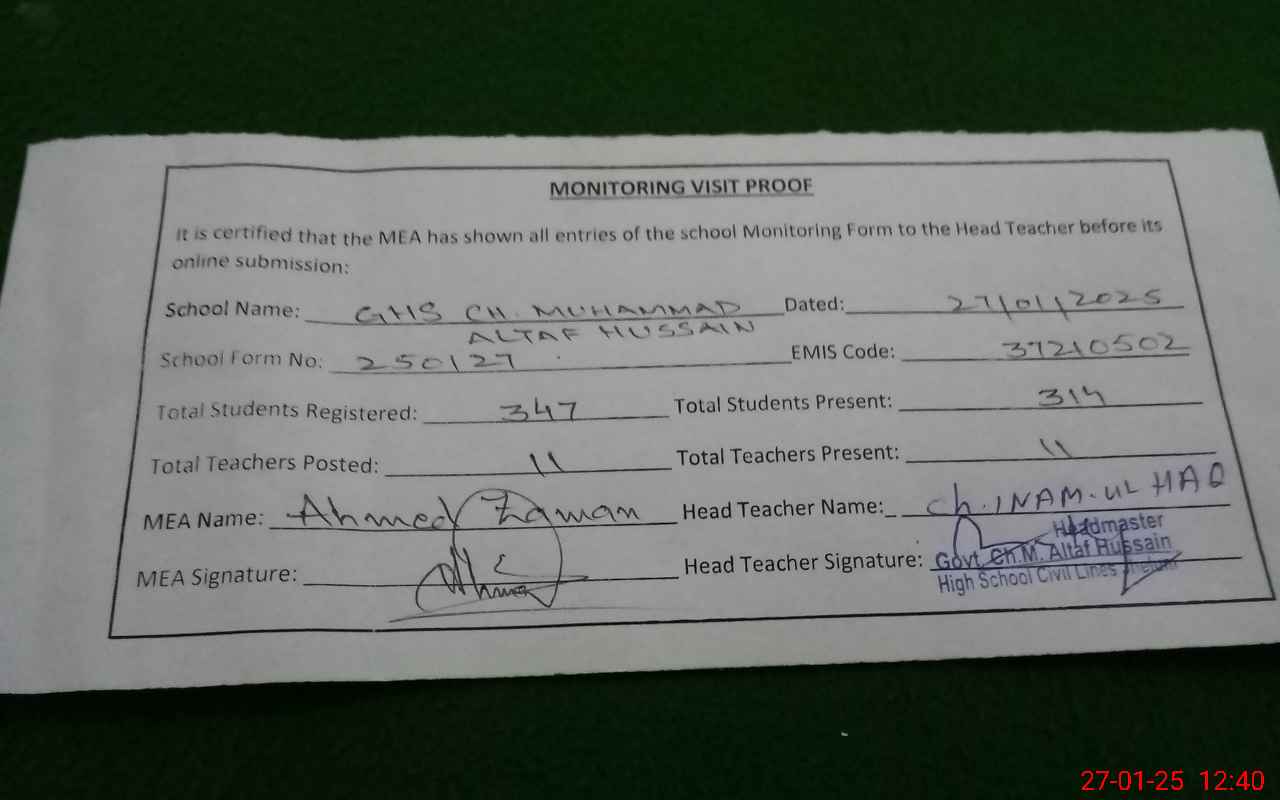 MONITORING VISIT PROOF
It is certified that the MEA has shown all entries of the school Monitoring Form to the Head Teacher before its
online submission:
School Name: GHS CH. MUHAMMAD Dated: 27/01/2025
ALTAF HUSSAIN
School Form No: 250127 EMIS Code: 37210502
Total Students Registered: 347 Total Students Present: 314
Total Teachers Posted: 11 Total Teachers Present: 11
MEA Name: Ahmed Zaman Head Teacher Name: Ch. INAM-UL HAQ
Headmaster
MEA Signature: Head Teacher Signature: Govt. Ch.M. Altaf Hussain
High School Civil Lines
27-01-25 12:40